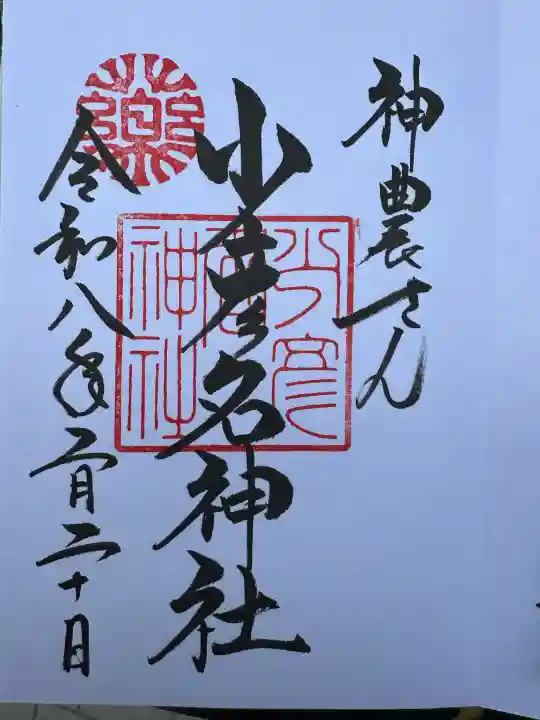 神農さん
少彦名神社
令和八年二月二十日
少彦
名
神社
藥